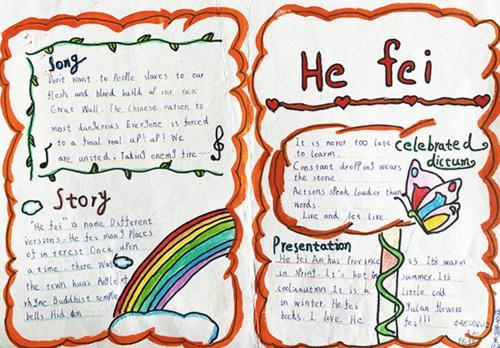 Song
Don't want to People slaves to our
flesh and blood build up our new
Great Wall. The Chinese nation to
most dangerous Everyone is forced
to a final roar. up! up! We
are united, Taking enemy fire
Story
"He fei" is name Different
versions. He fei many Places
of in terest Once upon
a time, there was
the town
Buddhist temple
bells Hid
He fei
celebrated
dictum
It is never too late
to learn.
Constant dropping wears
the stone.
Actions speak louder than
words.
Live and let live.
Presentation
He fei An hui Province is. It's warm
in spring. It's hot in summer. It's
cool autumn It is a little cold
in winter. He fei Yulan flowers
I love He fei!!!